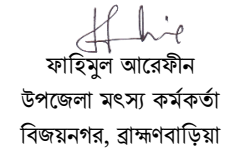 ফাহিমুল আরেফীন
উপজেলা মৎস্য কর্মকর্তা
বিজয়নগর, ব্রাহ্মণবাড়িয়া